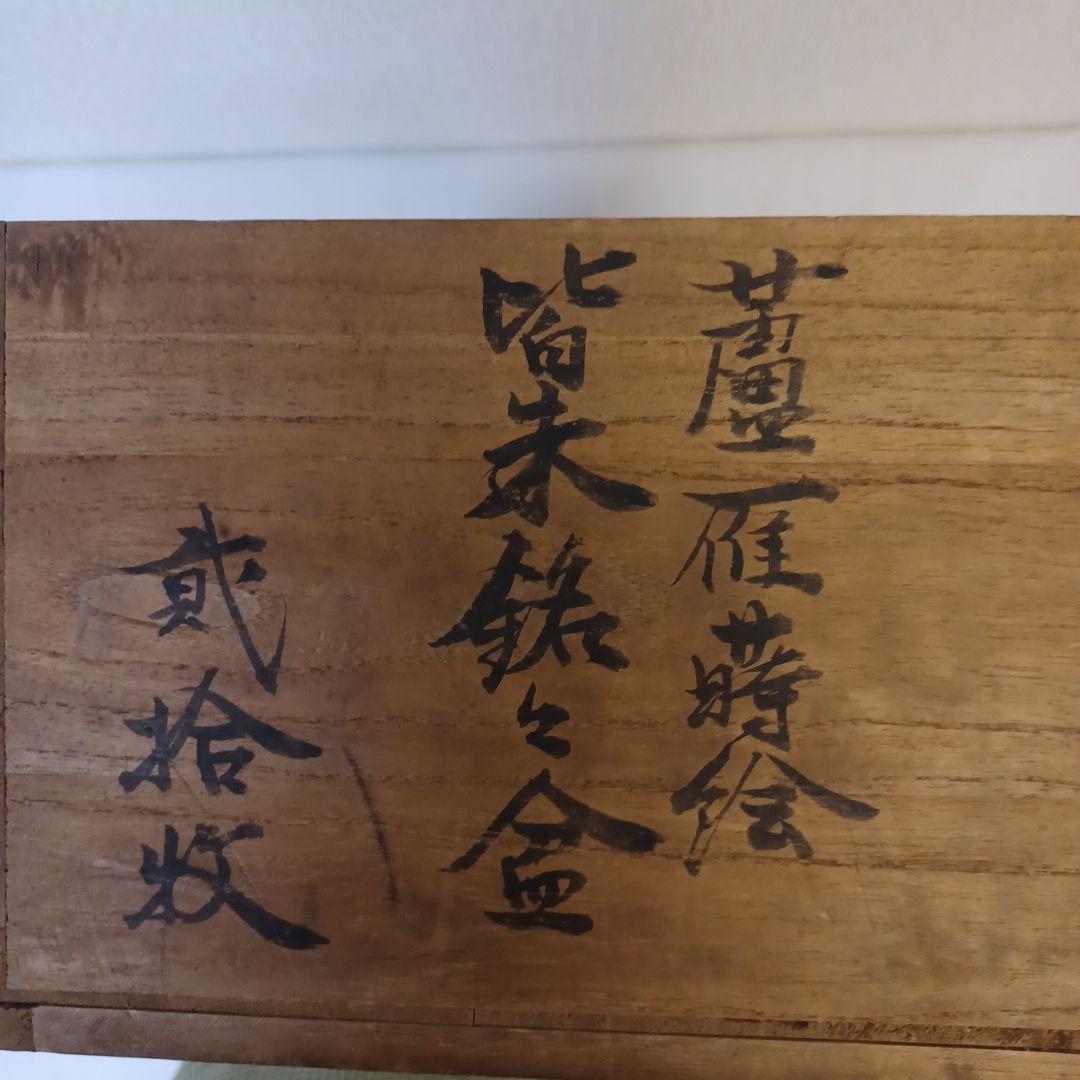 蘆雁蒔絵
皆朱銘々盆
貳拾枚